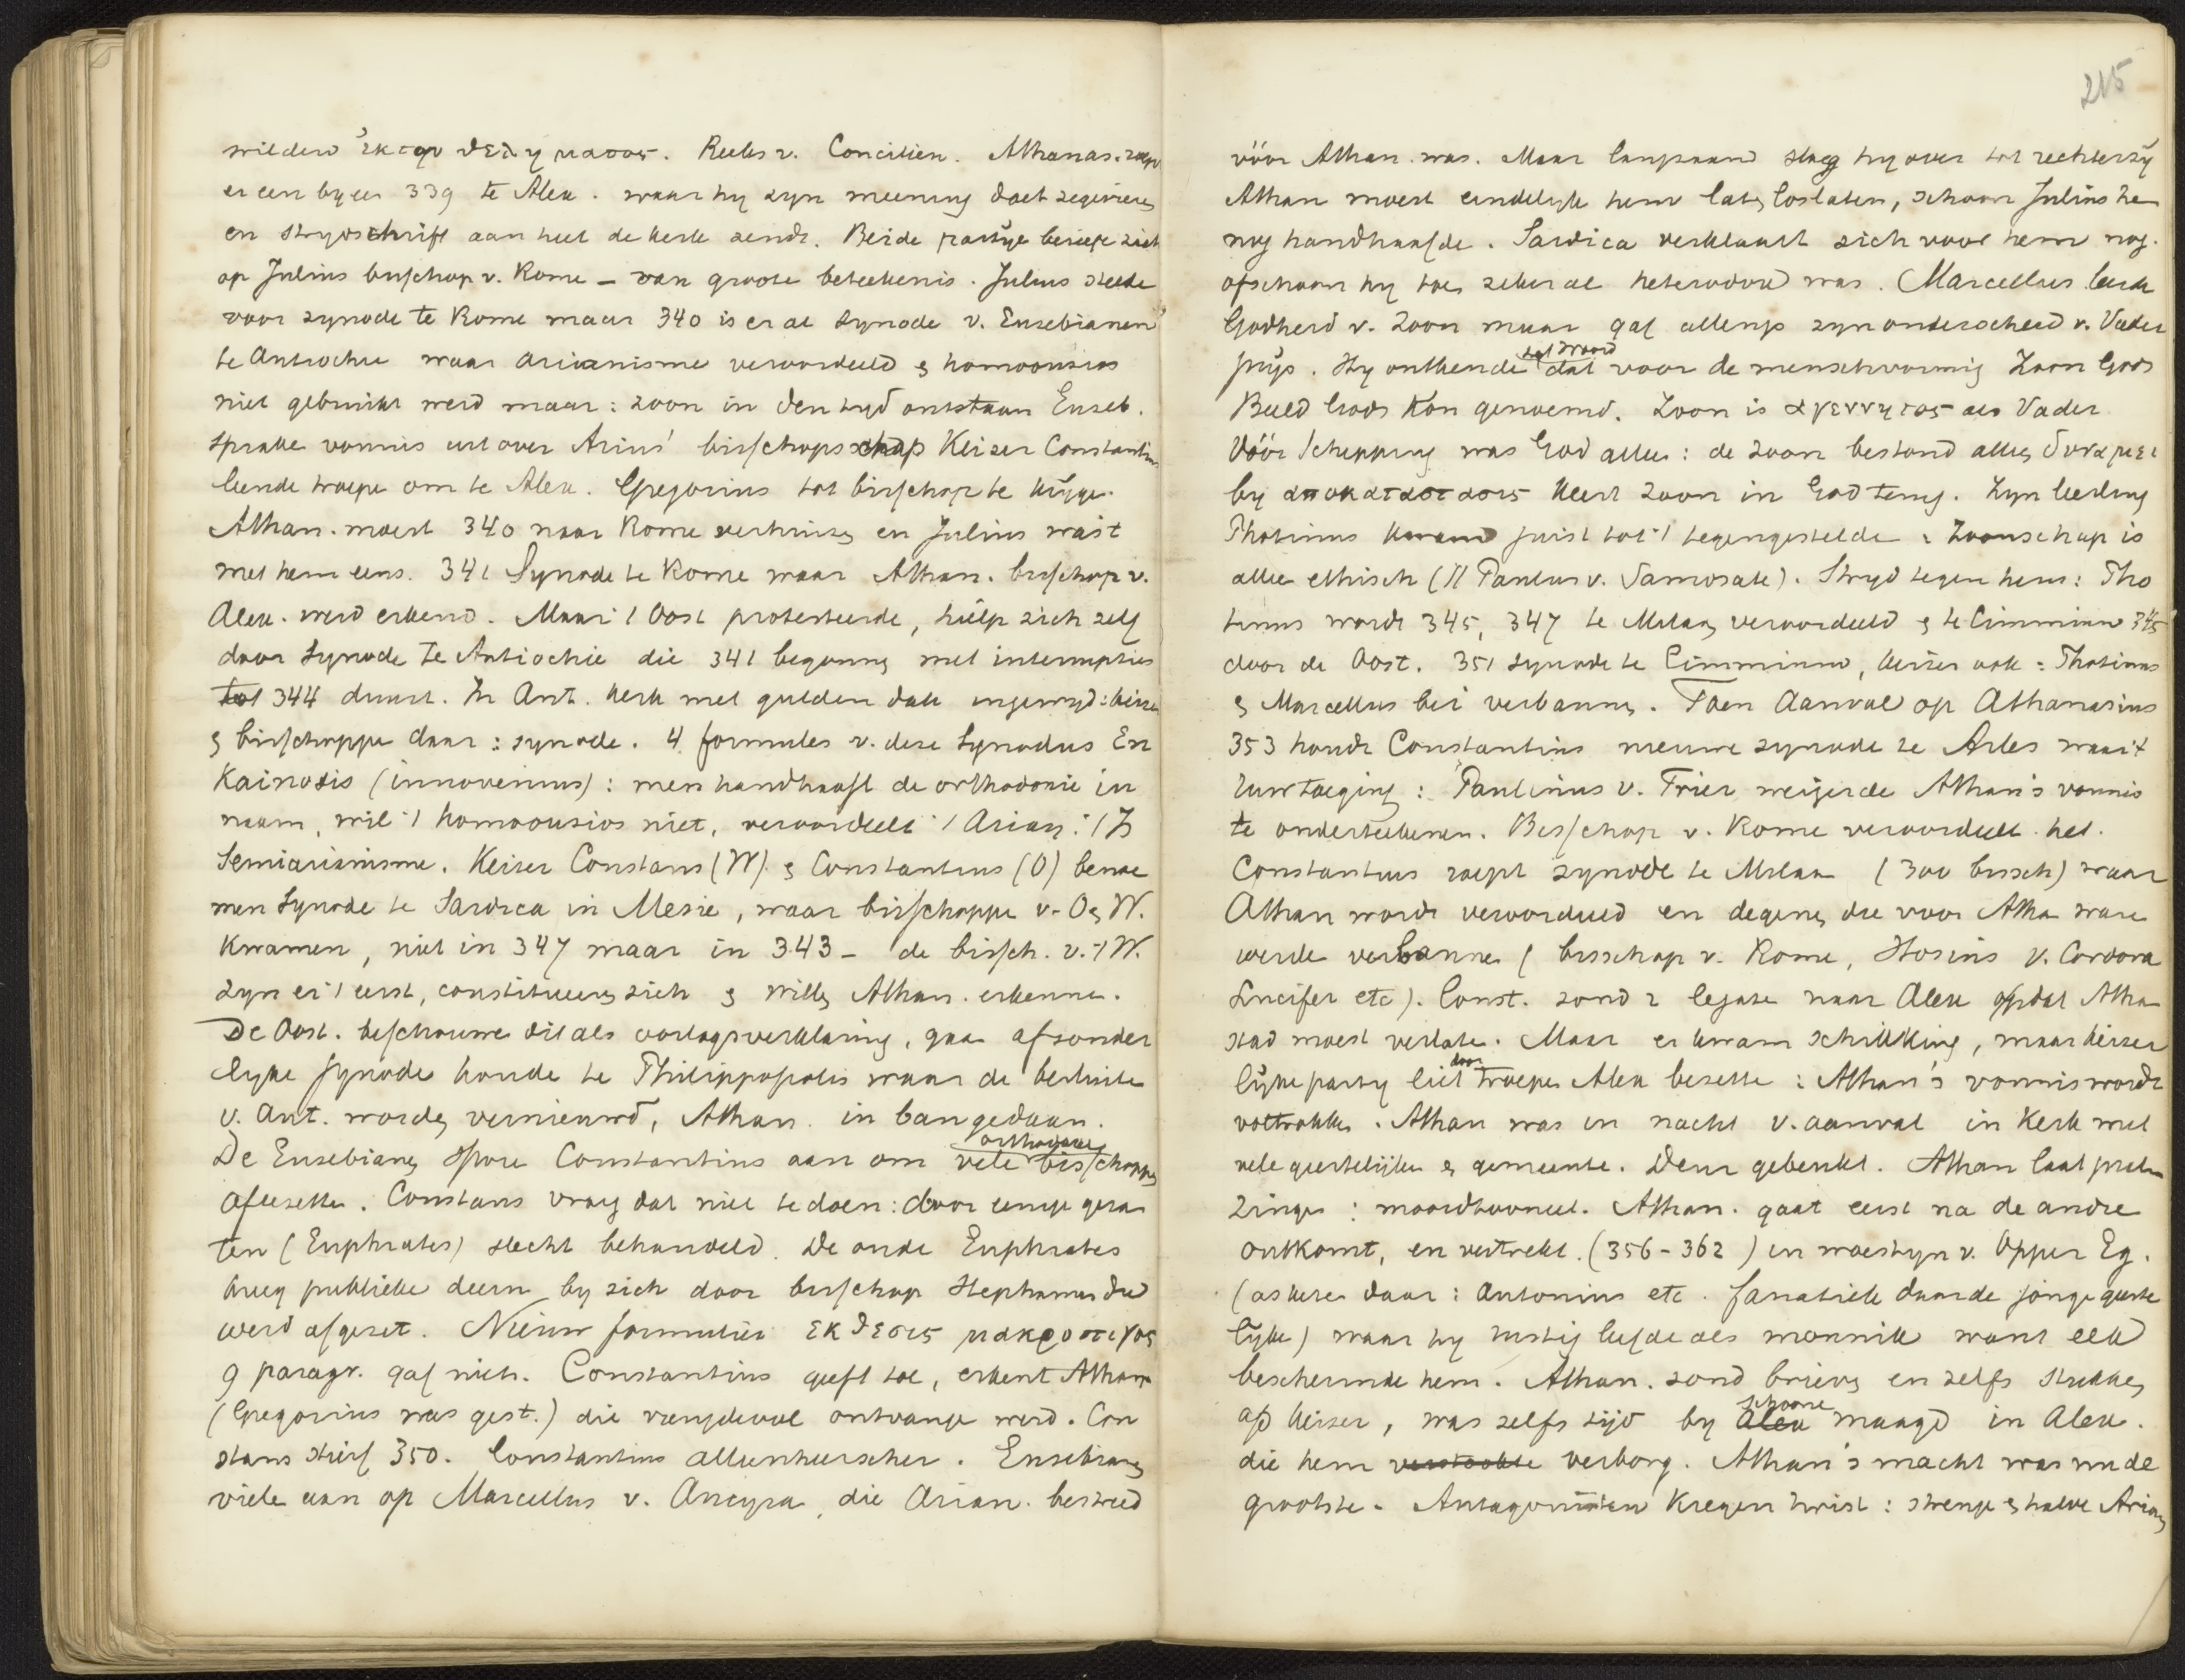 wilden ἐκ τοῦ θελήματος. Reeks v. Conciliën. Athanas. roep
er een byeen 339 te Alex. waar hy zyn meening doet zegevieren
en strydschrift aan heel de kerk zendt. Beide partije beriepe zich
op Julius bisschop v. Rome – van groote beteekenis. Julius stelde
voor synode te Rome maar 340 is er al synode v. Eusebianen
te Antiochie waar Arianisme veroordeeld & homoousios
niet gebruikt werd maar: zoon in den tyd ontstaan Euseb.
sprake vonnis uit over Arius' bisschopsschap Keizer Constantius
leende troepe om te Alex. Gregorius tot bisschop te krijge.
Athan. moest 340 naar Rome verhuizen en Julius was 't
met hem eens. 341 Synode te Rome waar Athan. bisschop v.
Alex. werd erkend. Maar 't Oost protesteerde, hielp zich zelf
door Synode te Antiochie die 341 begonnen met interrupties
tot 344 duurt. In Ant. kerk met gulden dak ingewyd: keizer
& bisschoppe daar: synode. 4 formules v. deze Synodus En
Kainosis (innovenius): men handhaaft de orthodoxie in
naam, wil 't homoousios niet, veroordeelt 't Arian.: 't Is
Semiarianisme. Keizer Constans (W). & Constantius (O) benoe
men Synode te Sardica in Mesie, waar bisschoppe v. O & W.
Kwamen, niet in 347 maar in 343 – de bissch. v. 't W.
zyn er 't eerst, constitueeren zich & wille Athan. erkenne.
De Oost. beschouwe dit als oorlogsverklaring, gaa afzonder
lyke synode houde te Philippopolis waar de besluite
v. Ant. worden vernieuwd, Athan. in ban gedaan.
De Eusebianen spore Constantius aan om vele orthodoxe bisschoppen
aftezette. Constans vraag dat niet te doen: door eenige gezan
ten (Euphrates) slecht behandeld. De oude Euphrates
kreeg publieke deern by zich door bisschop Stephanus die
werd afgezet. Nieuw formulier ἔκθεσις μακρόστιχος
9 paragr. gaf niets. Constantius geeft toe, erkent Athan
(Gregorius was gest.) die vreugdevol ontvange werd. Con
stans stierf 350. Constantius alleenheerscher. Eusebianen
viele aan op Marcellus v. Ancyra, die Arian. bestreed
215
vóór Athan. was. Maar langzaam sloeg hy over tot rechterzy
Athan moest eindelyk hem laten loslaten, schoon Julius he
nog handhaafde. Sardica verklaart zich voor hem nog.
ofschoon hy toen zeker al heterodox was. Marcellus leerde
Godheid v. Zoon maar gaf allengs zyn onderscheid v. Vader
prijs. Hy ontkende dat het Woord voor de menschwording Zoon Gods
Beeld Gods kon genoemd. Zoon is ἀγέννητος als Vader
Vóór schepping was God alles: de Zoon bestond alleen δυνάμει
by ἀποκατάστασις keert Zoon in God terug. Zyn leerling
Photinus kwam juist tot 't tegengestelde: Zoonschap is
alleen ethisch (// Paulus v. Samosate). Stryd tegen hem: Pho
tinus wordt 345, 347 te Milaan veroordeeld & te Cimminm 345
door de Oost. 351 synode te Cimminum, keizer ook: Photinus
& Marcellus bei verbannen. Toen Aanval op Athanasius
353 houdt Constantius nieuwe synode te Arles waar 't
ruw toeging: Paulinus v. Trier weigerde Athan's vonnis
te onderteekenen. Bisschop v. Rome veroordeelt het.
Constantius roept synode te Milaan (300 bissch) waar
Athan wordt veroordeeld en degenen die voor Atha ware
werde verbannen (bisschop v. Rome, Hosius v. Cordova
Lucifer etc). Const. zond 2 legate naar Alex opdat Atha
stad moest verlate. Maar er kwam schikking, maar keizer
lijke party liet door troepen Alex bezette: Athan's vonnis wordt
voltrokke. Athan was in nacht v. aanval in Kerk met
vele geestelijken & gemeente. Deur gebeukt. Athan laat psalm
zingen: moordtooneel. Athan. gaat eerst na de andre
ontkomt, en vertrekt. (356 – 362) in woestyn v. Opper Eg.
(askese daar: Antonius etc. fanatiek daarde jonge geeste
lijke) waar hy rustig leefde als monnik want elk
beschermde hem. Athan. zond brieven en zelfs stukken
op keizer, was zelfs tijd by schoone maagd in Alex.
die hem verborg. Athan's macht was nu de
grootste. Antagonisten kregen twist: strenge & halve Arian